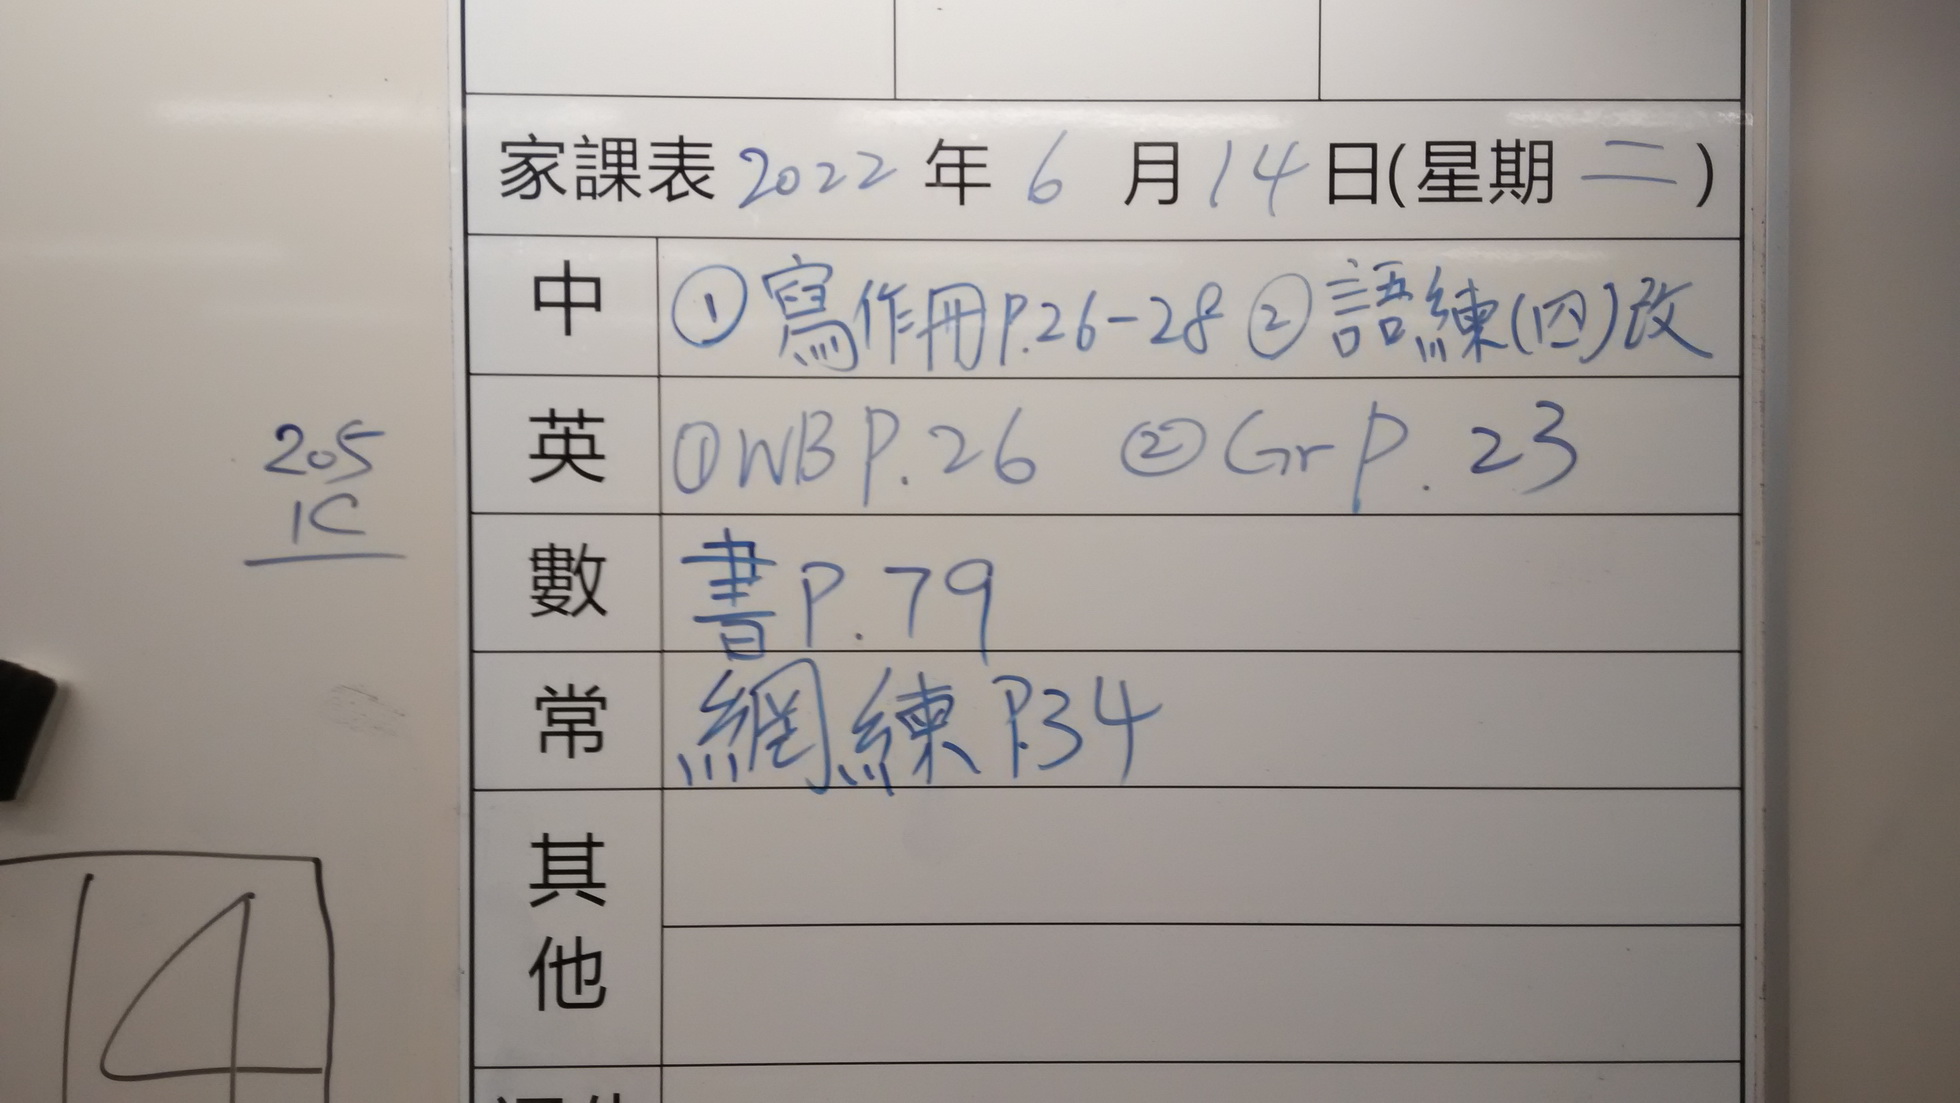 家課表 2022 年 6 月 14 日(星期 二)
中 ①寫作冊P.26-28 ②語練(四)改
英 ①WB P.26 ②Gr P.23
數 書P.79
常 網練P.34
其他
205
1C
14